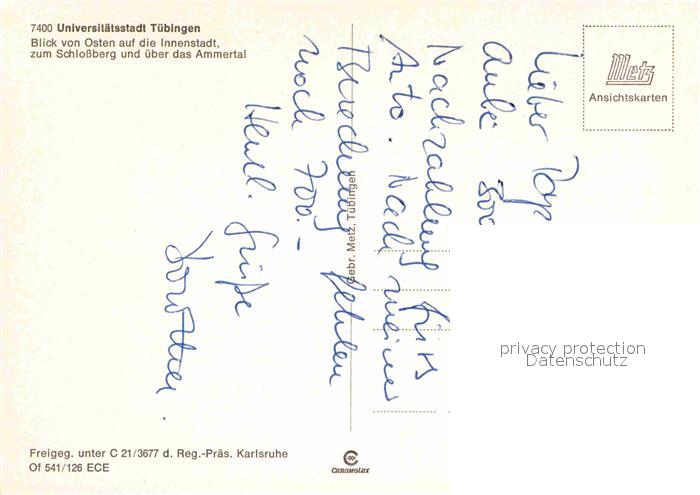 7400 Universitätsstadt Tübingen
Blick von Osten auf die Innenstadt,
zum Schloßberg und über das Ammertal
Metz
Ansichtskarten
Lieber
Nachzahlung fürs
Auto. Nach meiner
Berechnung fehlen
noch 700.-
Herzl. Grüße
Dorothee.
Gebr. Metz, Tübingen
privacy protection
Datenschutz
Freigeg. unter C 21/3677 d. Reg.-Präs. Karlsruhe
Of 541/126 ECE
CHROMOLUX